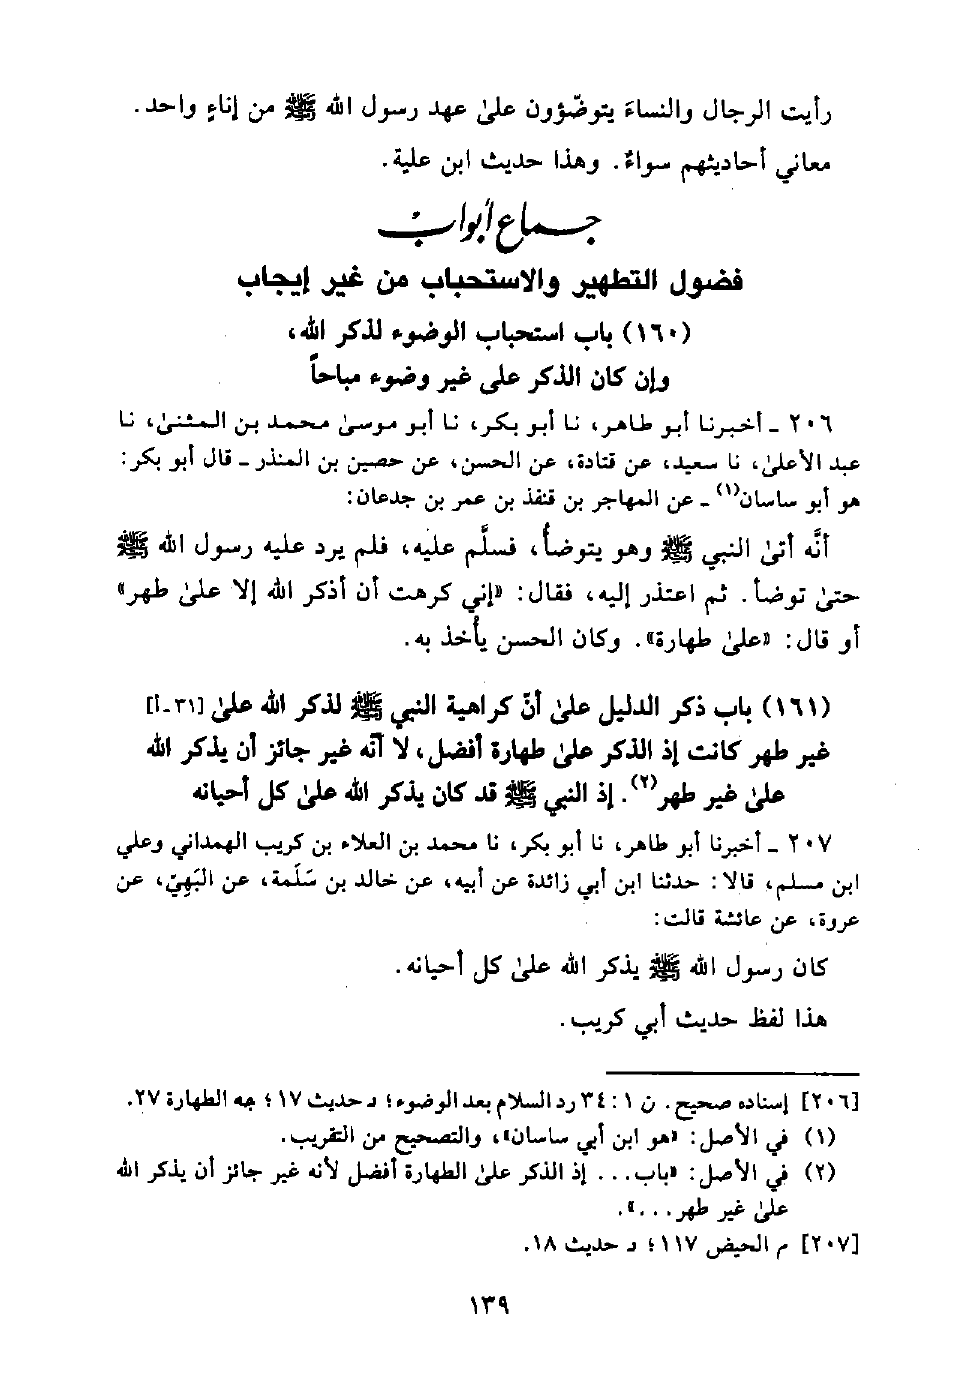 رأيت الرجال والنساءَ يتوضّؤون علىٰ عهد رسول الله ﷺ من إناءٍ واحد.
معاني أحاديثهم سواءٌ. وهذا حديث ابن علية.
جماع أبواب
فضول التطهير والاستحباب من غير إيجاب
(١٦٠) باب استحباب الوضوء لذكر الله،
وإن كان الذكر على غير وضوء مباحاً
٢٠٦ ـ أخبرنا أبو طاهر، نا أبو بكر، نا أبو موسىٰ محمد بن المثنىٰ، نا
عبد الأعلىٰ، نا سعيد، عن قتادة، عن الحسن، عن حصين بن المنذر ـ قال أبو بكر:
هو أبو ساسان(١) ـ عن المهاجر بن قنفذ بن عمر بن جدعان:
أنَّه أتىٰ النبي ﷺ وهو يتوضأُ، فسلَّم عليه، فلم يرد عليه رسول الله ﷺ
حتىٰ توضأ. ثم اعتذر إليه، فقال: «إني كرهت أن أذكر الله إلا علىٰ طهر»
أو قال: «علىٰ طهارة». وكان الحسن يأُخذ به.
(١٦١) باب ذكر الدليل علىٰ أنّ كراهية النبي ﷺ لذكر الله علىٰ [٣١ـأ]
غير طهر كانت إذ الذكر علىٰ طهارة أفضل، لا أنّه غير جائز أن يذكر الله
علىٰ غير طهر(٢). إذ النبي ﷺ قد كان يذكر الله علىٰ كل أحيانه
٢٠٧ ـ أخبرنا أبو طاهر، نا أبو بكر، نا محمد بن العلاء بن كريب الهمداني وعلي
ابن مسلم، قالا: حدثنا ابن أبي زائدة عن أبيه، عن خالد بن سَلَمة، عن البَهِيّ، عن
عروة، عن عائشة قالت:
كان رسول الله ﷺ يذكر الله علىٰ كل أحيانه.
هذا لفظ حديث أبي كريب.
[٢٠٦] إسناده صحيح. ن ١: ٣٤ رد السلام بعد الوضوء؛ د حديث ١٧؛ جه الطهارة ٢٧.
(١) في الأصل: «هو ابن أبي ساسان»، والتصحيح من التقريب.
(٢) في الأصل: «باب... إذ الذكر علىٰ الطهارة أفضل لأنه غير جائز أن يذكر الله
علىٰ غير طهر...».
[٢٠٧] م الحيض ١١٧؛ د حديث ١٨.
١٣٩